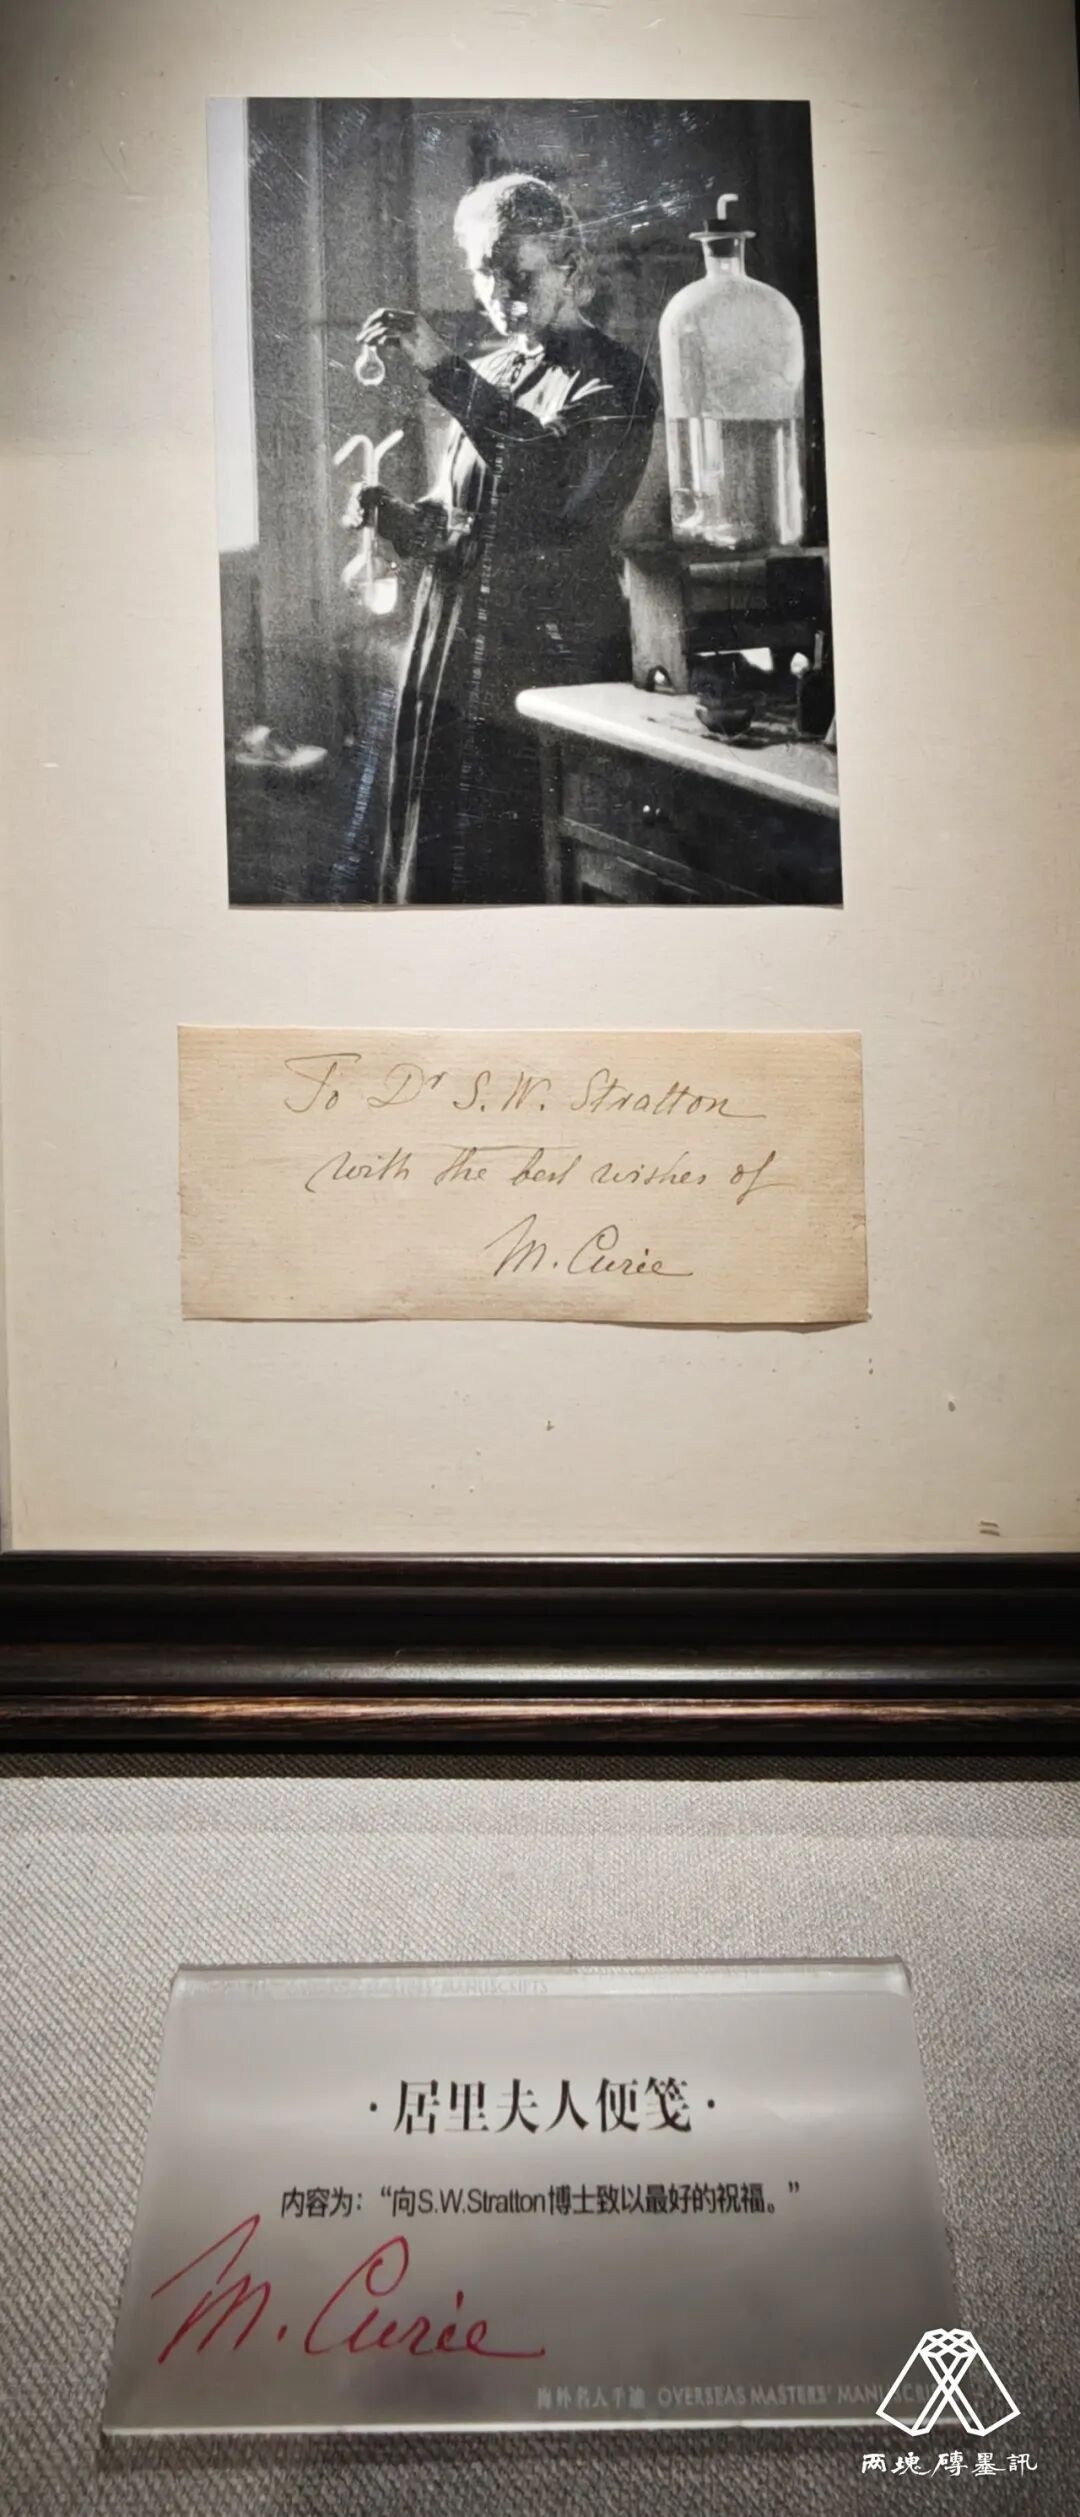 To Dr S. W. Stratton
with the best wishes of
M. Curie
MANUSCRIPTS
·居里夫人便笺·
内容为：“向S.W.Stratton博士致以最好的祝福。”
M. Curie
海外名人手迹 OVERSEAS MASTERS'
两塊磚墨訊